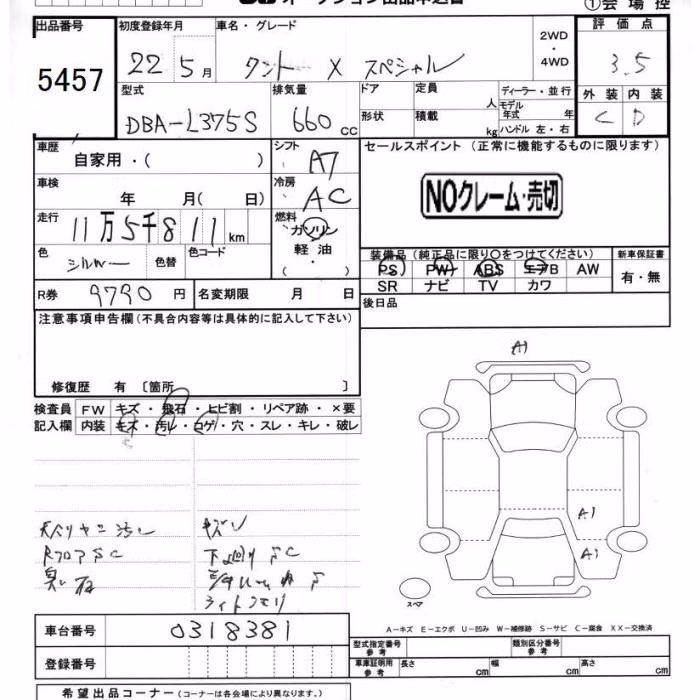 オークション出品申込書
①会場控
出品番号 初度登録年月 車名・グレード 2WD・4WD 評価点
5457 22 5月 タント X スペシャル 3.5
型式 排気量 ドア 定員 人 ディーラー・並行 外装 内装
DBA-L375S 660cc 形状 積載 kg モデル年式 年 C D
ハンドル 左・右
車歴 シフト セールスポイント (正常に機能するものに限ります)
自家用・( ) AT
車検 冷房 NOクレーム・売切
年 月( 日) AC
走行 燃料
11万5千811km ガソリン
軽油
・( )
色 色替 色コード 装備品(純正品に限り○をつけてください) 新車保証書
シルバー PS PW ABS エアB AW 有・無
SR ナビ TV カワ
R券 9790円 名変期限 月 日 後日品
注意事項申告欄(不具合内容等は具体的に記入して下さい)
修復歴 有 〔箇所 〕
A1
検査員 FW キズ・飛石・ヒビ割・リペア跡・×要
記入欄 内装 キズ・汚レ・コゲ・穴・スレ・キレ・破レ
A1
A1
天バリヤニ汚レ キズレ
RフロアSC 下廻りSC
臭い有
ライトクモリ
スペア
A-キズ E-エクボ U-凹み W-補修跡 S-サビ C-腐食 XX-交換済
車台番号 0318381
型式指定番号 参考 類別区分番号 参考
登録番号 車庫証明用 参考 長さ cm 幅 cm 高さ cm
希望出品コーナー(コーナーは各会場により異なります。)